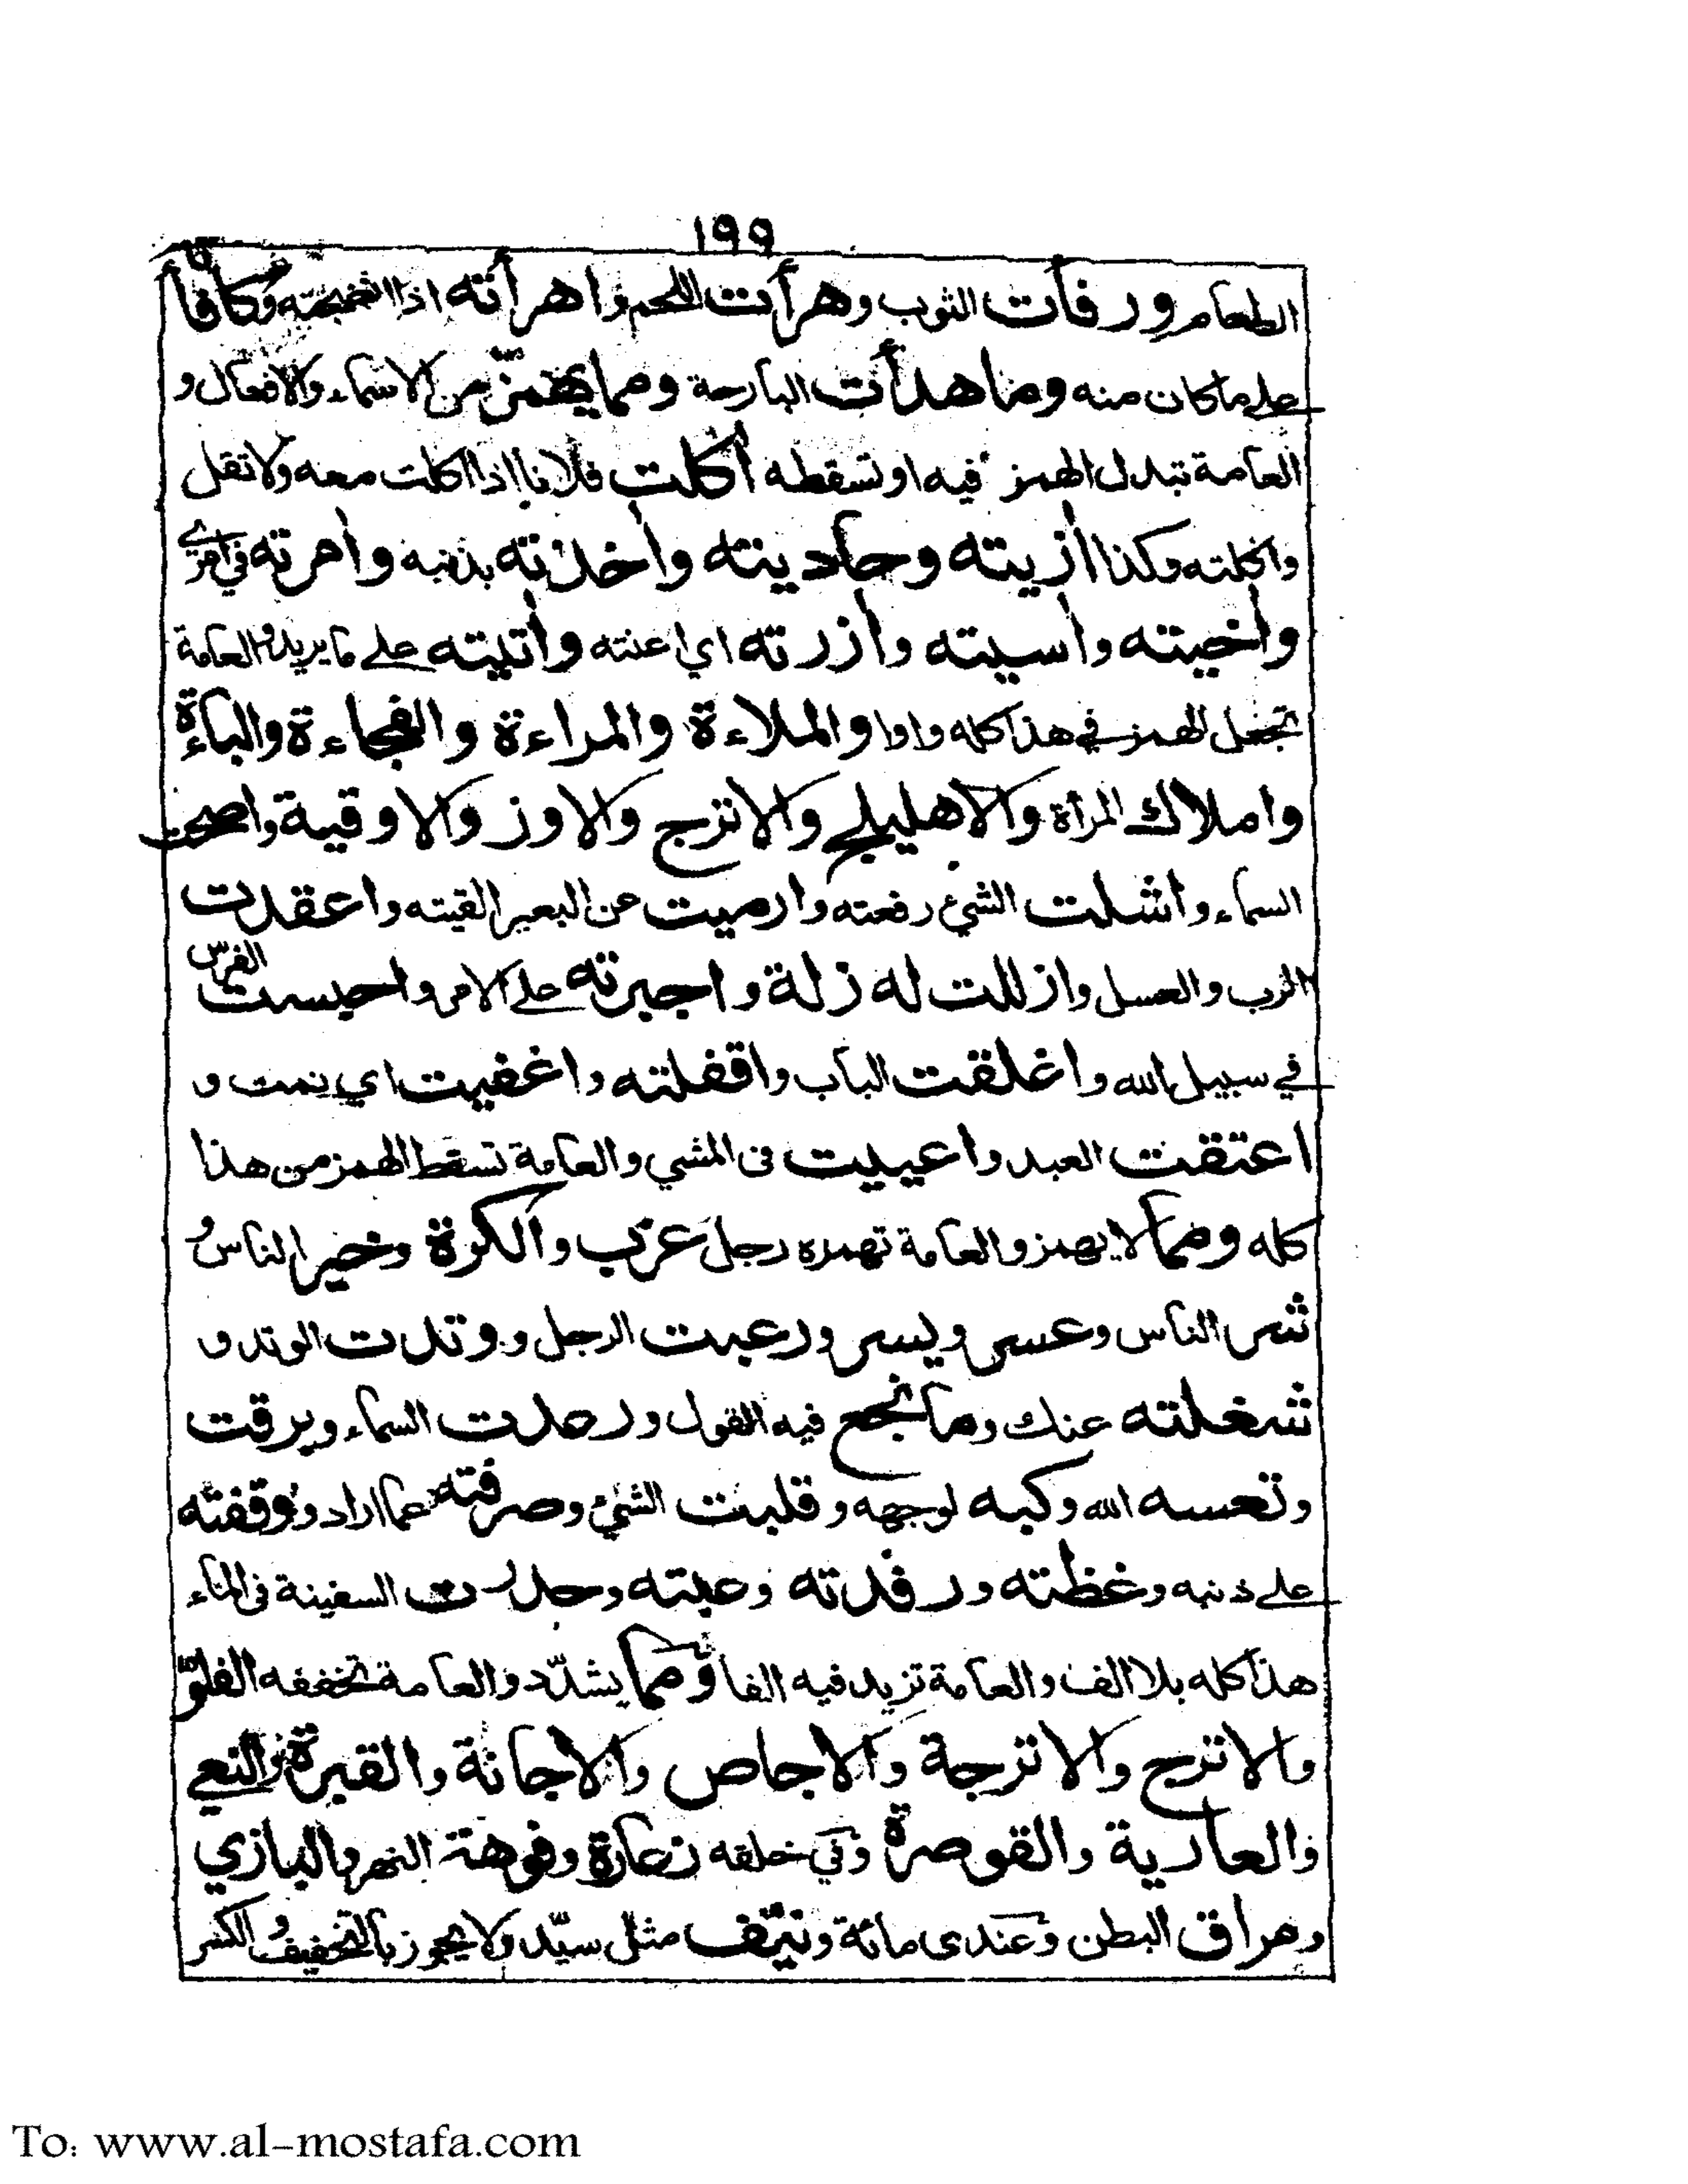 ١٩٩
الطعام ورفأت الثوب وهرأت اللحم واهرأته اذا انضجته وكافأته
على ما كان منه وما هدأت البارحة ومما يهمز من الاسماء والافعال و
العامة تبدل الهمز فيه او تسقطه أكلت فلانا اذا اكلت معه ولا تقل
واكلته وكذا أزيته وحاديته وأخذته بذنبه وأمرته في امري
وأخيته وأسيته وأزرته اي اعنته وأتيته على ما يريد والعامة
تجعل الهمز في هذا كله واوا والملاءة والمراءة والفجاءة والباءة
واملاك المرأة والاهليلج والاترج والاوز والاوقية واصحت
السماء واشلت الشئ رفعته وارميت عن البعير القيته واعقدت
الرب والعسل وازللت له زلة واجبرته على الامر واحبست الفرس
في سبيل الله واغلقت الباب واقفلته واغفيت اي نمت و
اعتقت العبد واعييت فى المشي والعامة تسقط الهمز من هذا
كله ومما لا يهمز والعامة تهمزه رجل عزب والكرة وخير الناس و
شر الناس وعسر ويسر ورعبت الرجل ووتدت الوتد و
شغلته عنك وما نجع فيه القول ورعدت السماء وبرقت
وتعسه الله وكبه لوجهه وقلبت الشئ وصرفته عما اراد ووقفته
على ذنبه وغظته ورفدته وعبته وحدرت السفينة فى الماء
هذا كله بلا الف والعامة تزيد فيه الفا ومما يشدّد والعامة تخففه الفلوّ
والاترج والاترجة والاجاص والاجانة والقبرة والنعي
والعارية والقوصرة وفي خلقه زعارة وفوهة النهر والبازي
ومراق البطن وعندى مائة ونيّف مثل سيّد ولا يجوز بالتخفيف والكسر
To: www.al-mostafa.com